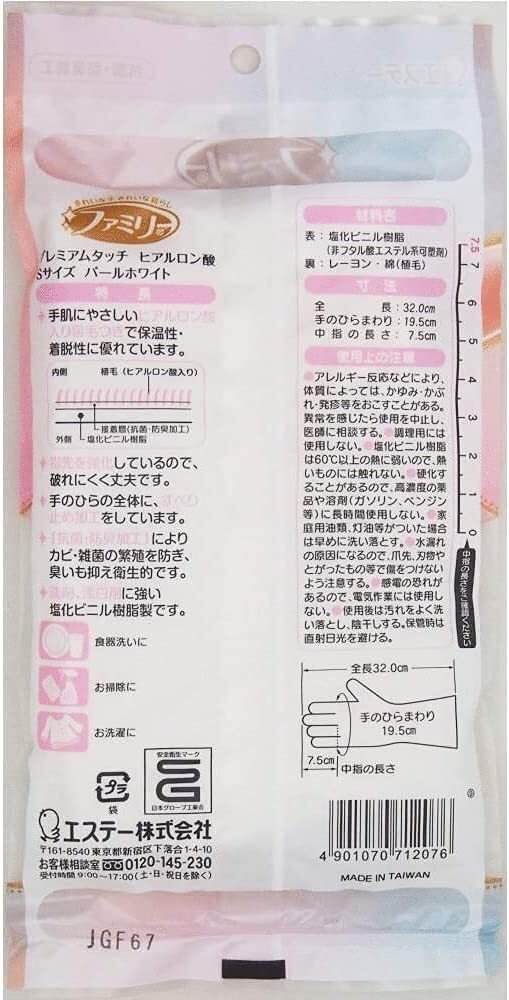 エステー
ファミリー
きれいな手、きれいな暮らし
ファミリー
プレミアムタッチ ヒアルロン酸
Sサイズ パールホワイト
特長
手肌にやさしいヒアルロン酸
入り植毛つきで保温性・
着脱性に優れています。
内側 植毛(ヒアルロン酸入り)
接着層(抗菌・防臭加工)
外側 塩化ビニル樹脂
指先を強化しているので、
破れにくく丈夫です。
手のひらの全体に、すべり
止め加工をしています。
「抗菌・防臭加工」により
カビ・雑菌の繁殖を防ぎ、
臭いも抑え衛生的です。
洗剤、漂白剤に強い
塩化ビニル樹脂製です。
食器洗いに
お掃除に
お洗濯に
プラ
袋
安全衛生マーク
日本グローブ工業会
エステー株式会社
〒161-8540 東京都新宿区下落合1-4-10
お客様相談室 0120-145-230
受付時間 9:00〜17:00(土・日・祝日を除く)
JGF67
材料名
表:塩化ビニル樹脂
(非フタル酸エステル系可塑剤)
裏:レーヨン・綿(植毛)
寸法
全長:32.0cm
手のひらまわり:19.5cm
中指の長さ:7.5cm
使用上の注意
●アレルギー反応などにより、
体質によっては、かゆみ・かぶ
れ・発疹等をおこすことがある。
異常を感じたら使用を中止し、
医師に相談する。●調理用には
使用しない。●塩化ビニル樹脂
は60℃以上の熱に弱いので、熱
いものには触れない。●硬化す
ることがあるので、高濃度の薬
品や溶剤(ガソリン、ベンジン
等)に長時間使用しない。●家
庭用油類、灯油等がついた場合
は早めに洗い落とす。●水漏れ
の原因になるので、爪先、刃物や
とがったもの等で傷をつけない
よう注意する。●感電の恐れが
あるので、電気作業には使用し
ない。●使用後は汚れをよく洗
い落とし、陰干しする。保管時は
直射日光を避ける。
7.5
7
6
5
4
3
2
1
0
中指の長さをご確認ください
全長32.0cm
手のひらまわり
19.5cm
7.5cm
中指の長さ
4 901070 712076
MADE IN TAIWAN